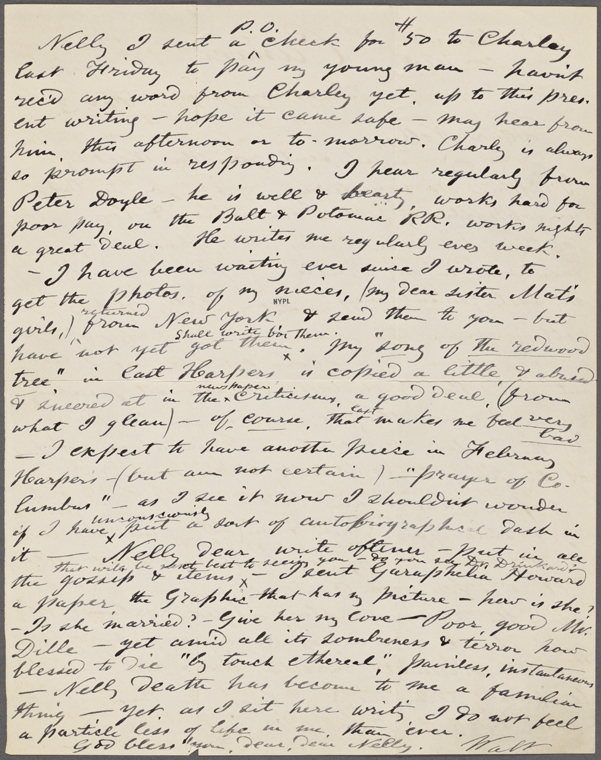 P.O.
Nelly I sent a check for $50 to Charley
last Friday to pay my young man – havn't
rec'd any word from Charley yet, up to this pres-
ent writing – hope it came safe – may hear from
him, this afternoon or to-morrow. Charley is always
so prompt in responding. I hear regularly from
Peter Doyle – he is well & hearty, works hard for
poor pay, on the Balt & Potomac RR. works nights
a great deal. He writes me regularly ever week.
– I have been waiting ever since I wrote, to
get the photos. of my nieces, (my dear sister Mat's
NYPL
returned
girls,) from New York & send them to you – but
Shall write for them.
have not yet got them. My "song of the redwood
tree" in last Harpers is copied a little, & abused
newspaper
& sneered at in the criticisms, a good deal, (from
what I glean) – of course, that makes me feel very
bad
– I expect to have another piece in February
Harpers – (but am not certain) – "prayer of Co-
lumbus" – as I see it now I shouldn't wonder
unconsciously
if I have put a sort of autobiographical dash in
it – Nelly dear write oftener – put in all
the gossip & items – I sent Garaphelia Howard
a paper, the Graphic that has my picture – how is she?
– Is she married? – Give her my love – Poor, good Mr.
Dille – yet amid all its sombreness & terror how
blessed to die "by touch ethereal," painless, instantaneous
– Nelly death has become to me a familiar
thing – yet as I sit here writing I do not feel
a particle less of life in me, than ever.
God bless you, dear, dear Nelly. Walt